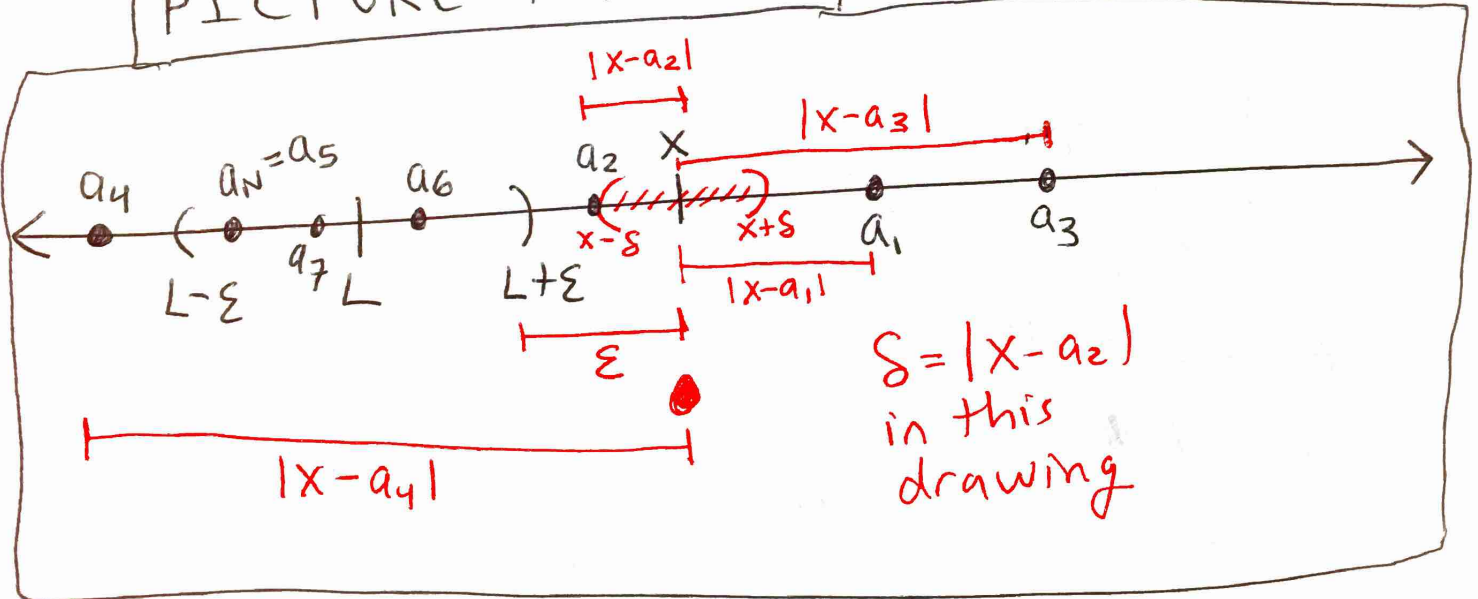 PICTURE
|x-a₂|
|x-a₃|
a₂ x
a₄ a_N=a₅ a₆
( ) ( )
x-δ x+δ a₁ a₃
L-ε a₇ L L+ε |x-a₁|
ε
δ=|x-a₂|
in this
drawing
|x-a₄|